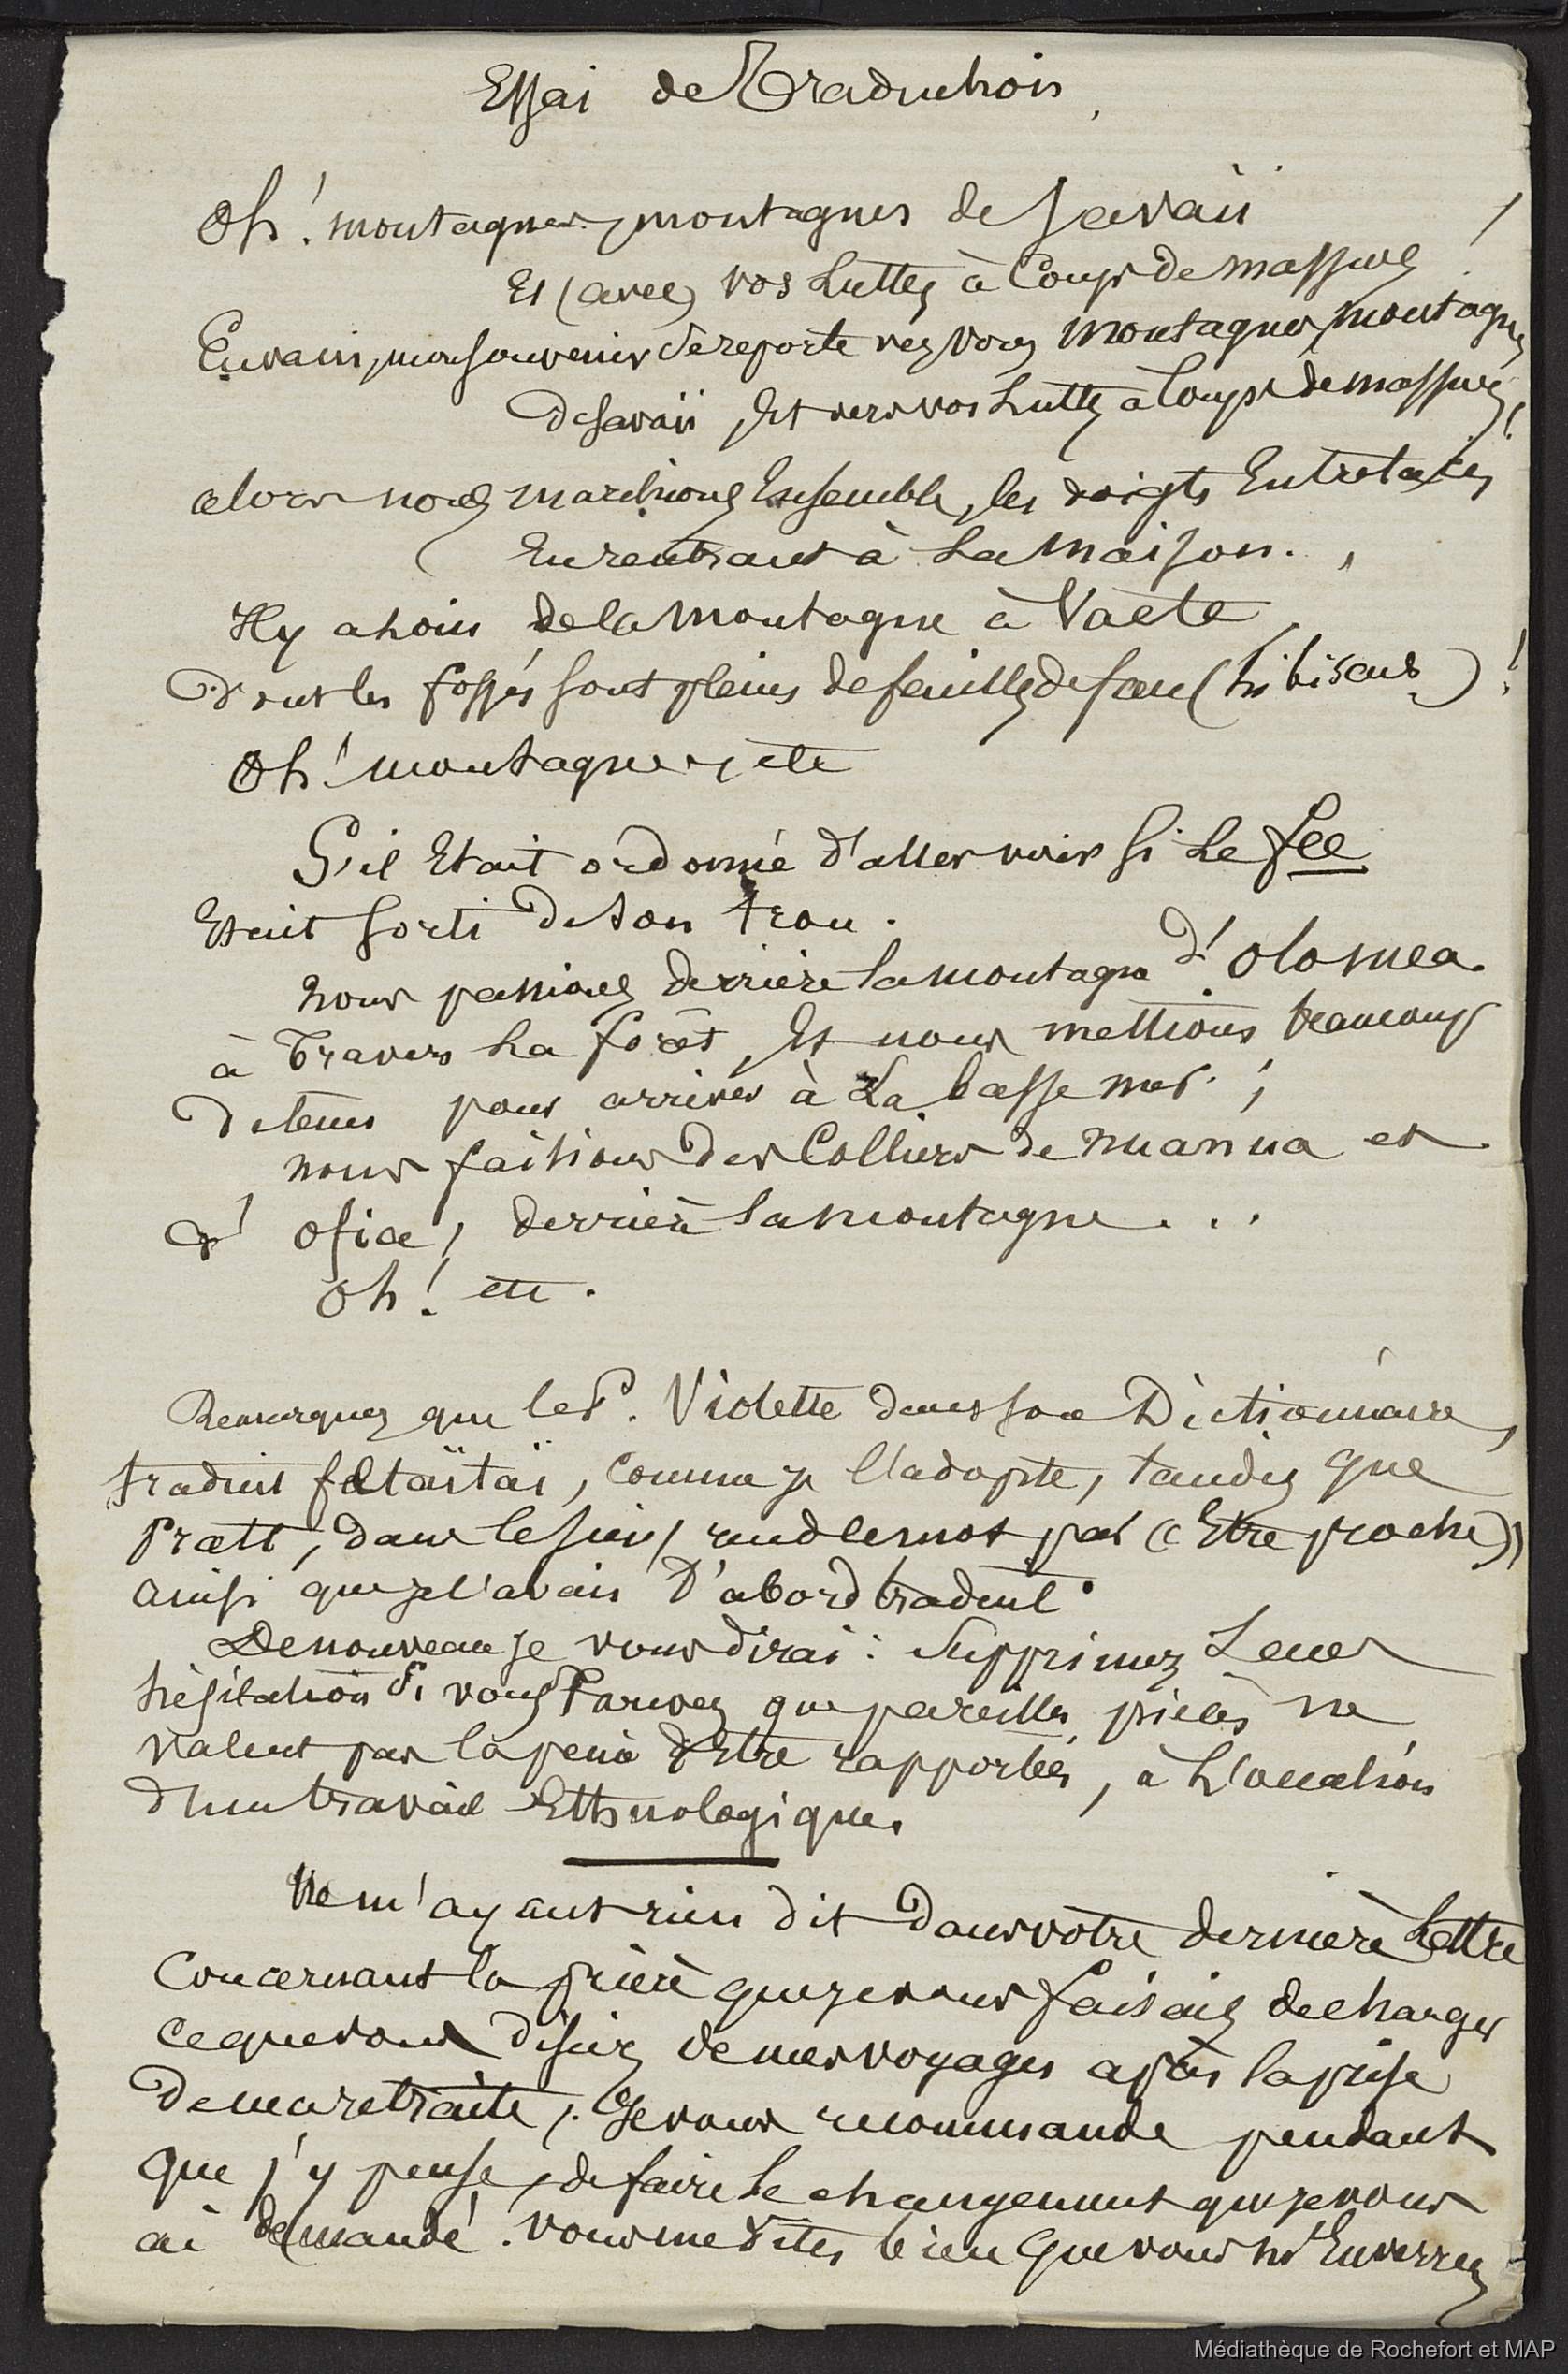 Essai de Traduction
Oh! montagnes, montagnes de Savaïi
Et (avec) vos luttes à Coups de massues !
En vain, mon souvenir se reporte vers vous montagnes, montagnes
de Savaïi, Et vers vos luttes à Coups de massues !
alors nous marchions Ensemble, les doigts Entrelacés,
En rentrant à la maison.
Il y a loin de la montagne à Vaete
Dont les fossés sont pleins de feuilles de fau (hibiscus) !
Oh! montagnes, etc
S'il Etait ordonné d'aller voir si le fee
Etait sorti de son trou.
nous passions derrière la montagne d'Olomea
à Travers la forêt, Et nous mettions beaucoup
de tems pour arriver à La basse mer ;
nous faisions des Colliers de nuanua et
d' ofia, derrière la montagne...
Oh! etc.
Remarquez que le P. Violette dans son Dictionnaire,
traduit fetaïtaï, comme je l'adopte, tandis que
Pratt, dans le sien, rend le mot par « Etre proche »
ainsi que je l'avais d'abord traduit.
De nouveau je vous dirai : Supprimez sans
hésitation si vous trouvez que pareilles pièces ne
valent pas la peine d'Etre rapportées, à l'occasion
d'un travail Ethnologique.
Ne m'ayant rien dit dans votre dernière lettre
Concernant la prière que je vous faisais de changer
ce que vous disiez de mes voyages après la prise
de ma retraite, Je vous recommande pendant
que j'y pense, de faire le changement que je vous
ai demandé. Vous me dites bien que vous m'Enverrez
Médiathèque de Rochefort et MAP